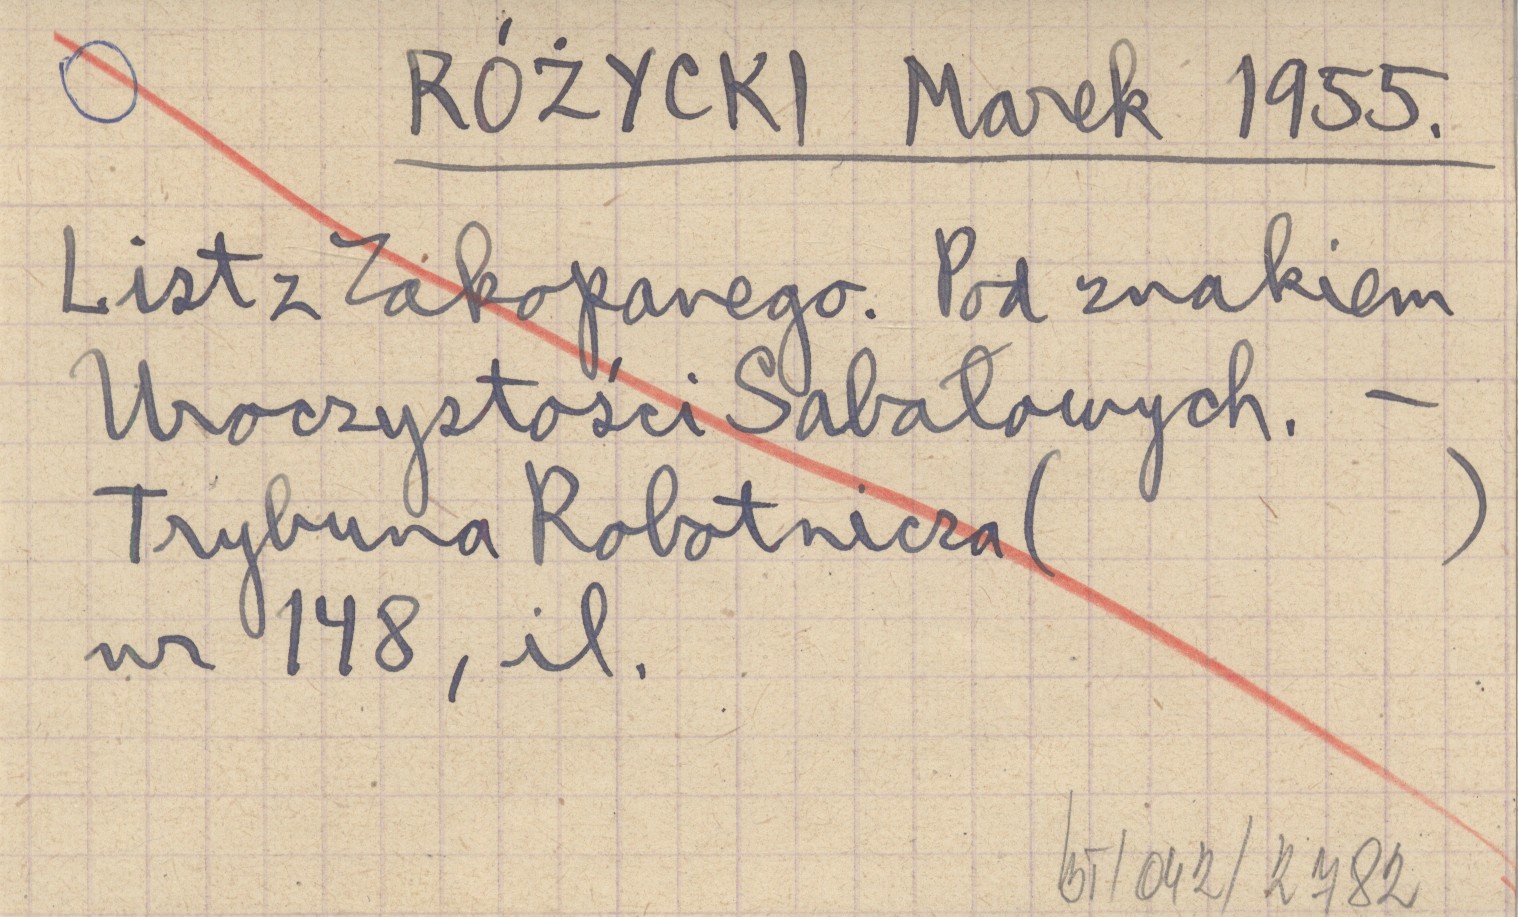 RÓŻYCKI Marek 1955.
List z Zakopanego. Pod znakiem
Uroczystości Sabałowych. –
Trybuna Robotnicza ( )
nr 148, il.
BT/042/2782